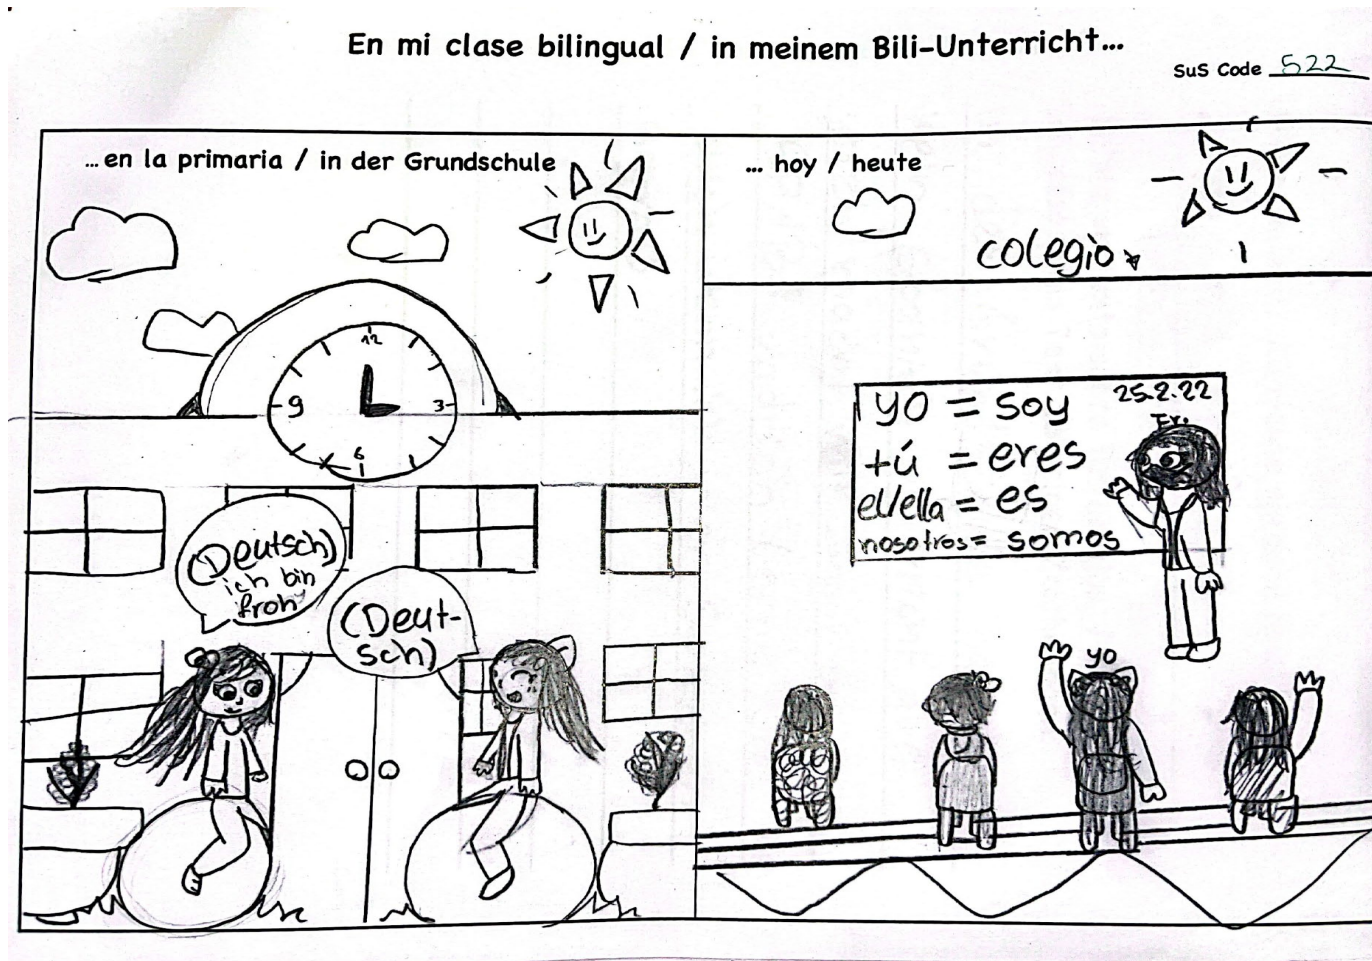 En mi clase bilingual / in meinem Bili-Unterricht...
SuS Code 522
...en la primaria / in der Grundschule
12
9
3
6
(Deutsch)
ich bin
froh
(Deut-
sch)
... hoy / heute
colegio
25.2.22
Fr.
yo = soy
tú = eres
el/ella = es
nosotros = somos
yo